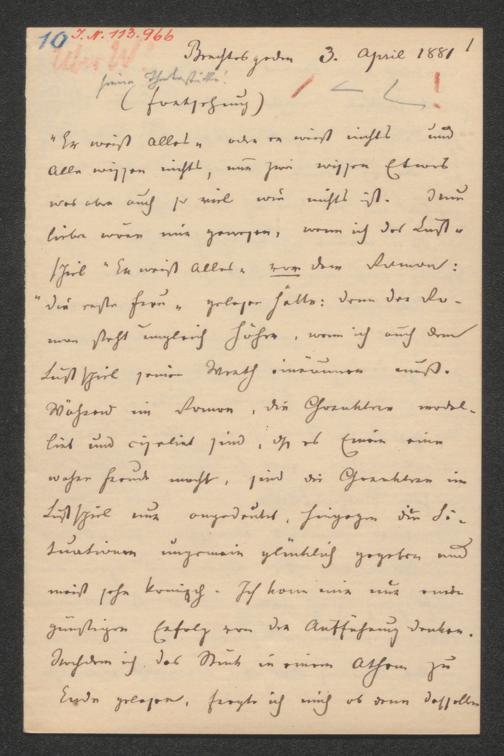 10 I.N. 113.966
Berchtesgaden 3. April 1881 1
über W!
seine Theaterstücke!
(Fortsetzung)
"Er weiß Alles" oder er weiß nichts und
Alle wissen nichts, nur zwei wissen Etwas
was aber auch so viel wie nichts ist. Denn
lieber wäre mir gewesen, wenn ich das Lust-
spiel "Er weiß Alles" vor dem Roman:
"die erste Frau" gelesen hätte: denn der Ro-
man steht ungleich höher, wenn ich auch dem
Lustspiel seinen Werth einräumen muß.
Während im Roman, die Charaktere model-
lirt und ciselirt sind, daß es Einem eine
wahre Freude macht, sind die Charaktere im
Lustspiel nur angedeutet, hingegen die Si-
tuationen ungemein glücklich gegeben und
meist sehr komisch. Ich kann mir nur einen
günstigen Erfolg von der Aufführung denken.
Nachdem ich das Stück in einem Athem zu
Ende gelesen, fragte ich mich ob denn dasselbe